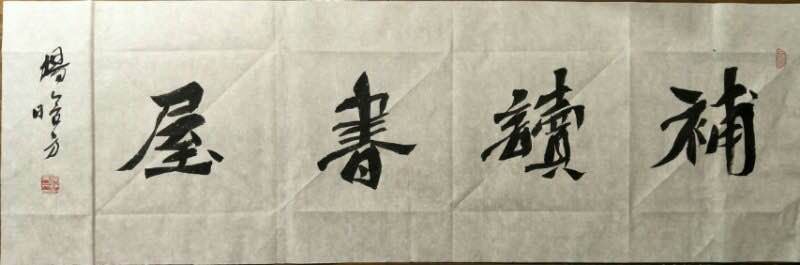 補讀書屋
楊晗方